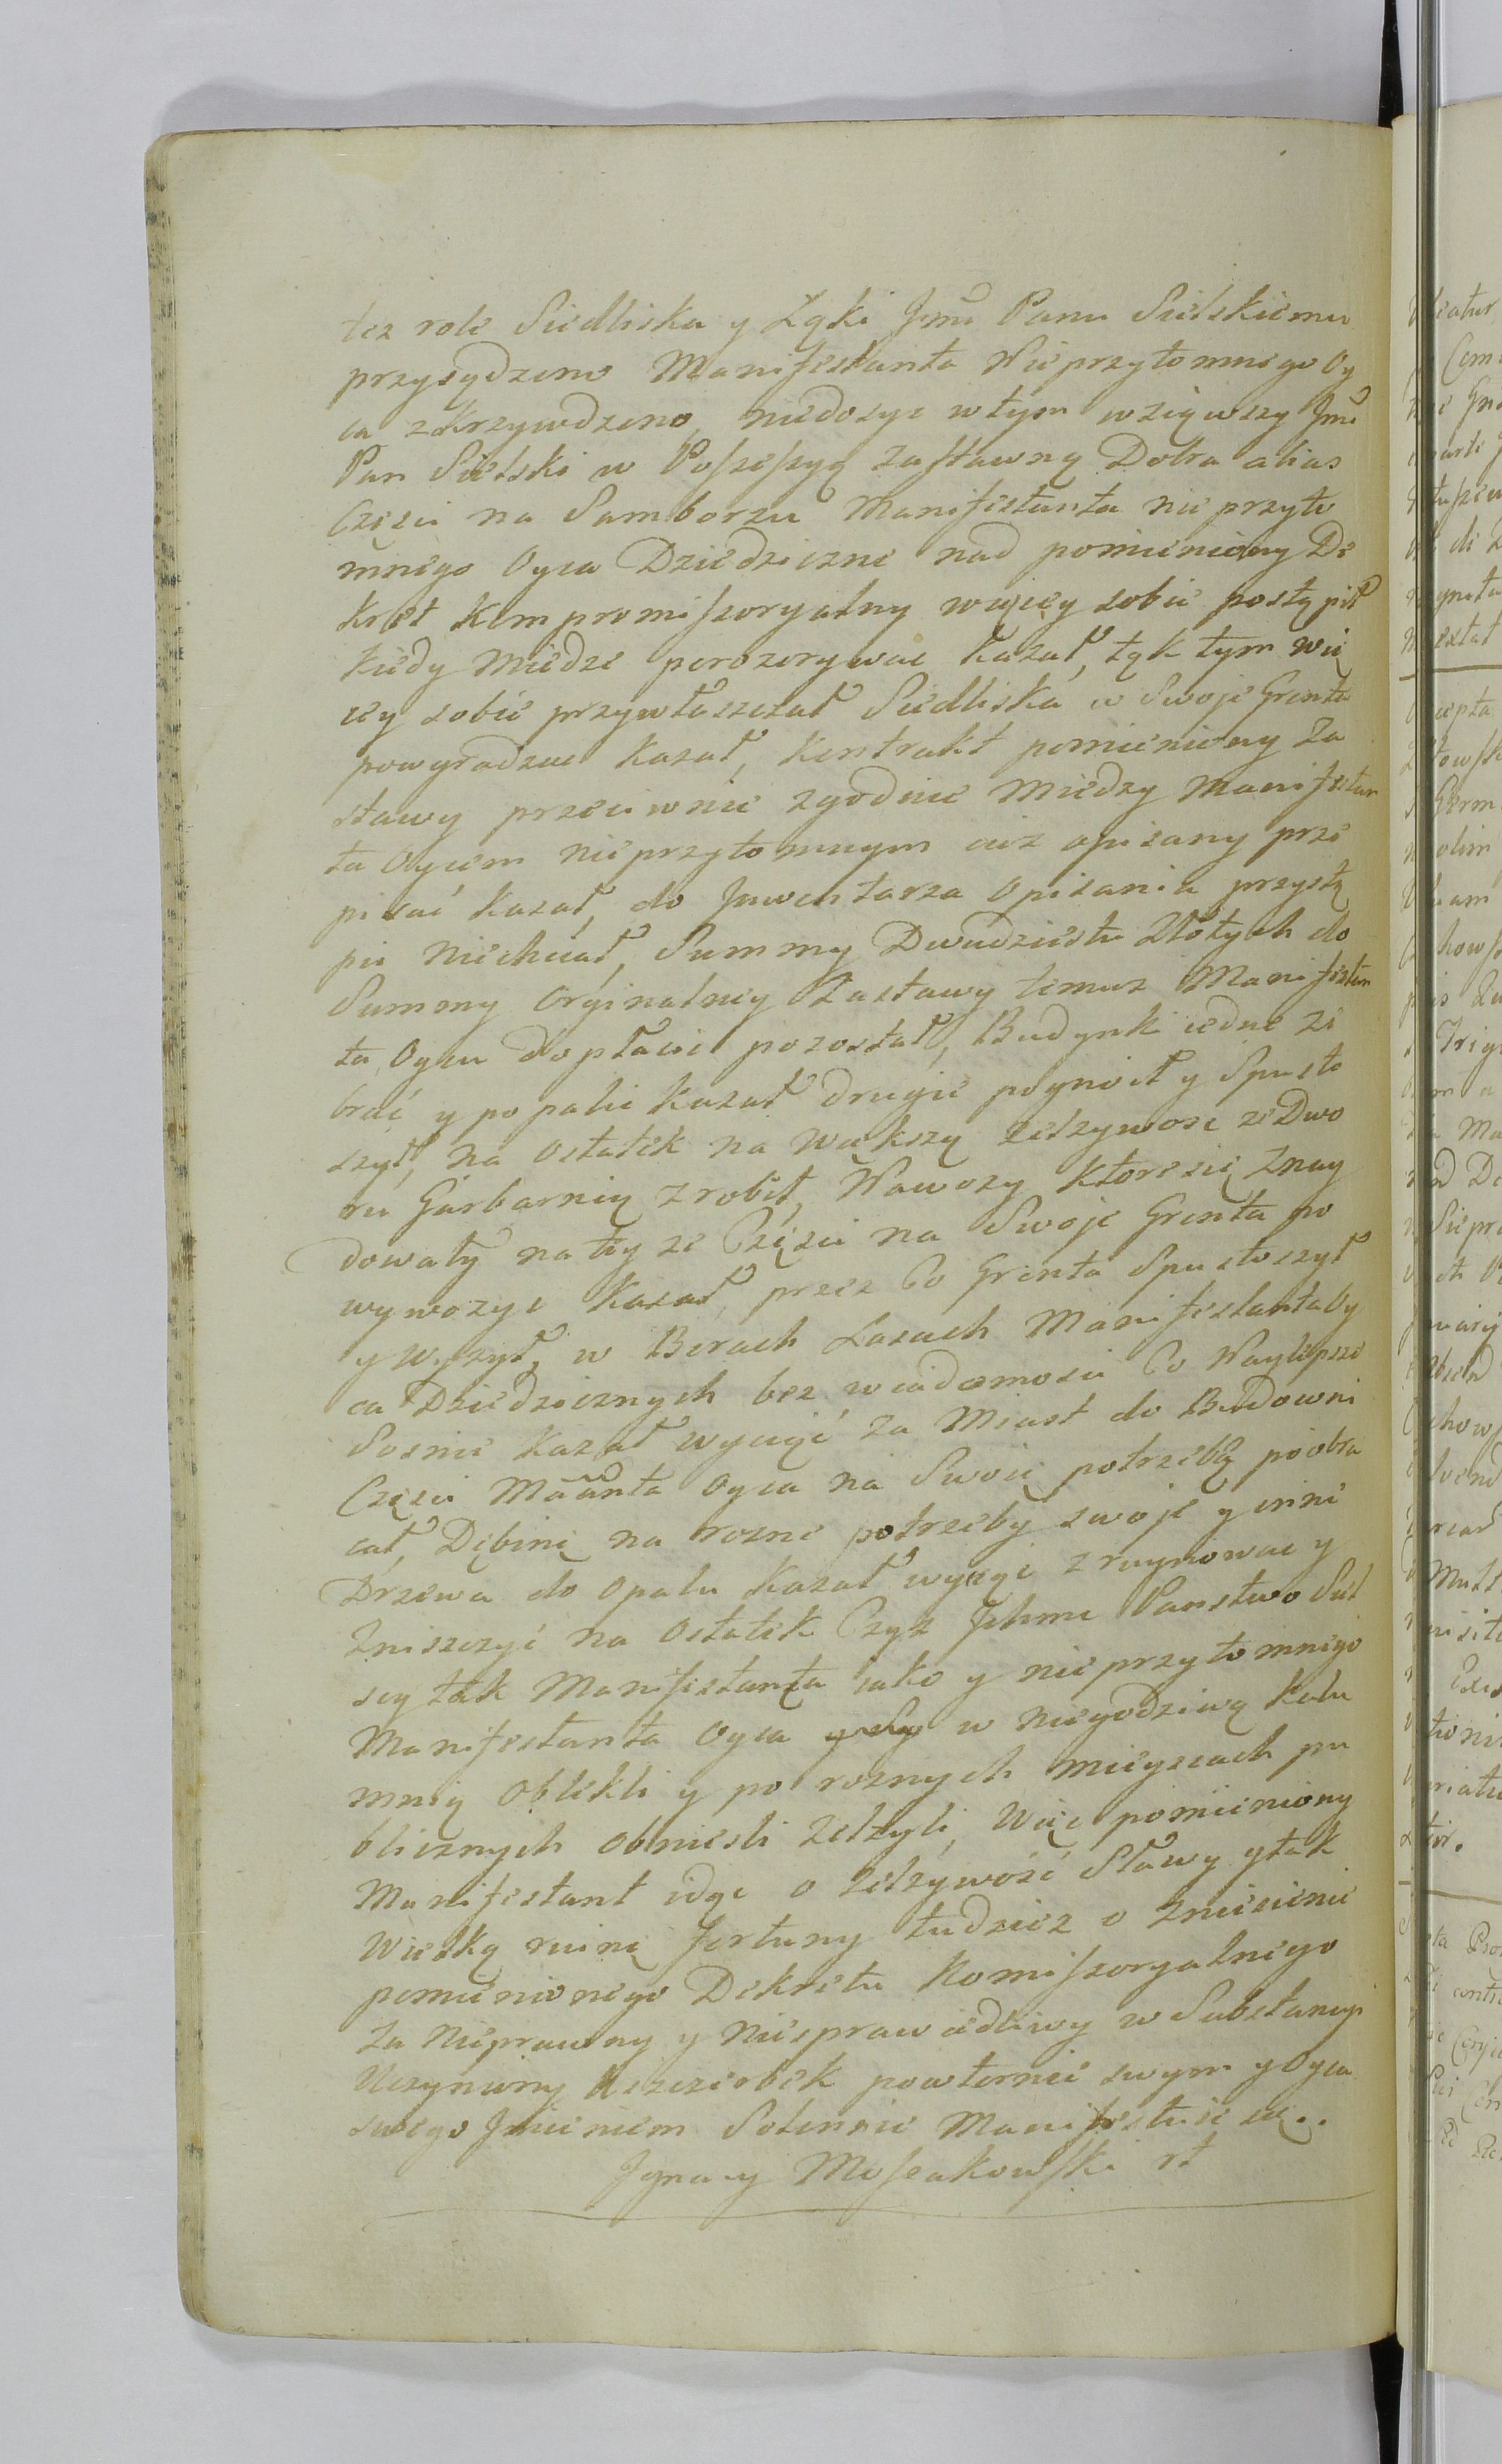 tez role Siedliska y Łąki Jmć Panu Sielskiemu
przysądzono Manifestanta Nieprzytomnego Oy
ca zkrzywdzono, niedosyc wtym wziąwszy Jmć
Pan Sielski w Possessyą zastawną Dobra alias
Częsci na Samborzu Manifestanta nie przyto
mnego Oyca Dziedziczne nad pomieniony De
kret Kompromissoryalny więcey sobie postąpił
kiedy Miedze porozorywac kazał, tąk tym wię
cey sobie przywłaszczał Siedliska w Swoje Gronta
powgradzac kazał, Kontrakt pomieniony Za
stawy przeciwnie zgodnie Między Manifestan
ta Oycem nieprzytomnym niz opisany prze
pisać kazał, do Jnwentarza Opisania przystą
pic Niechciał, Summy Dwudziestu Złotych do
Summy Orginalney Zastawy temuz Manifestan
ta Oycu dopłacic pozostał, Budynki iedne Ze
brać y popalic kazał drugie pognoił y Spusto
szył, na Ostatek na Większą zelzywosc ze Dwo
ru Garbarnią zrobił, Nawozy ktore się Znay
dowały na tey ze Częsci na Swoje Gronta po
wywozyc kazał, przez Co Gronta Spustoszył
y w Borach Lasach Manifestanta Oy
ca Dziedzicznych bez wiadomosci Co Naylepsze
Sosnie kazał wyciąć Za Miast do Budowni
Częsci Mããnta Oyca na Swoię potrzebę poobra
cał, Dębinę na rozne potrzeby swoje y inne
Drzewa do Opału kazał wyciąc zruynowac y
Zniszczyć na Ostatek Cyz Jchmć Panstwo Siel
scy tak Manifestanta iako y nieprzytomnego
Manifestanta Oyca w niegodziwą kalu
mnią Oblekli y po roznych mieyscach pu
blicznych Obniesli Zelzyli, Więc pomieniony
Manifestant idąc o Zelzywość Sławy y tak
Wielką ruinę Fortuny tudziez o Zniesienie
pomienionego Dekretu Komissoryalnego
Za Nieprawny y Niesprawiedliwy w Substancyi
Uczyniony powtornie swym y Oyca
swego Jmieniem Solennie Manifestuie się..
Jgnacy Moseakowski rt